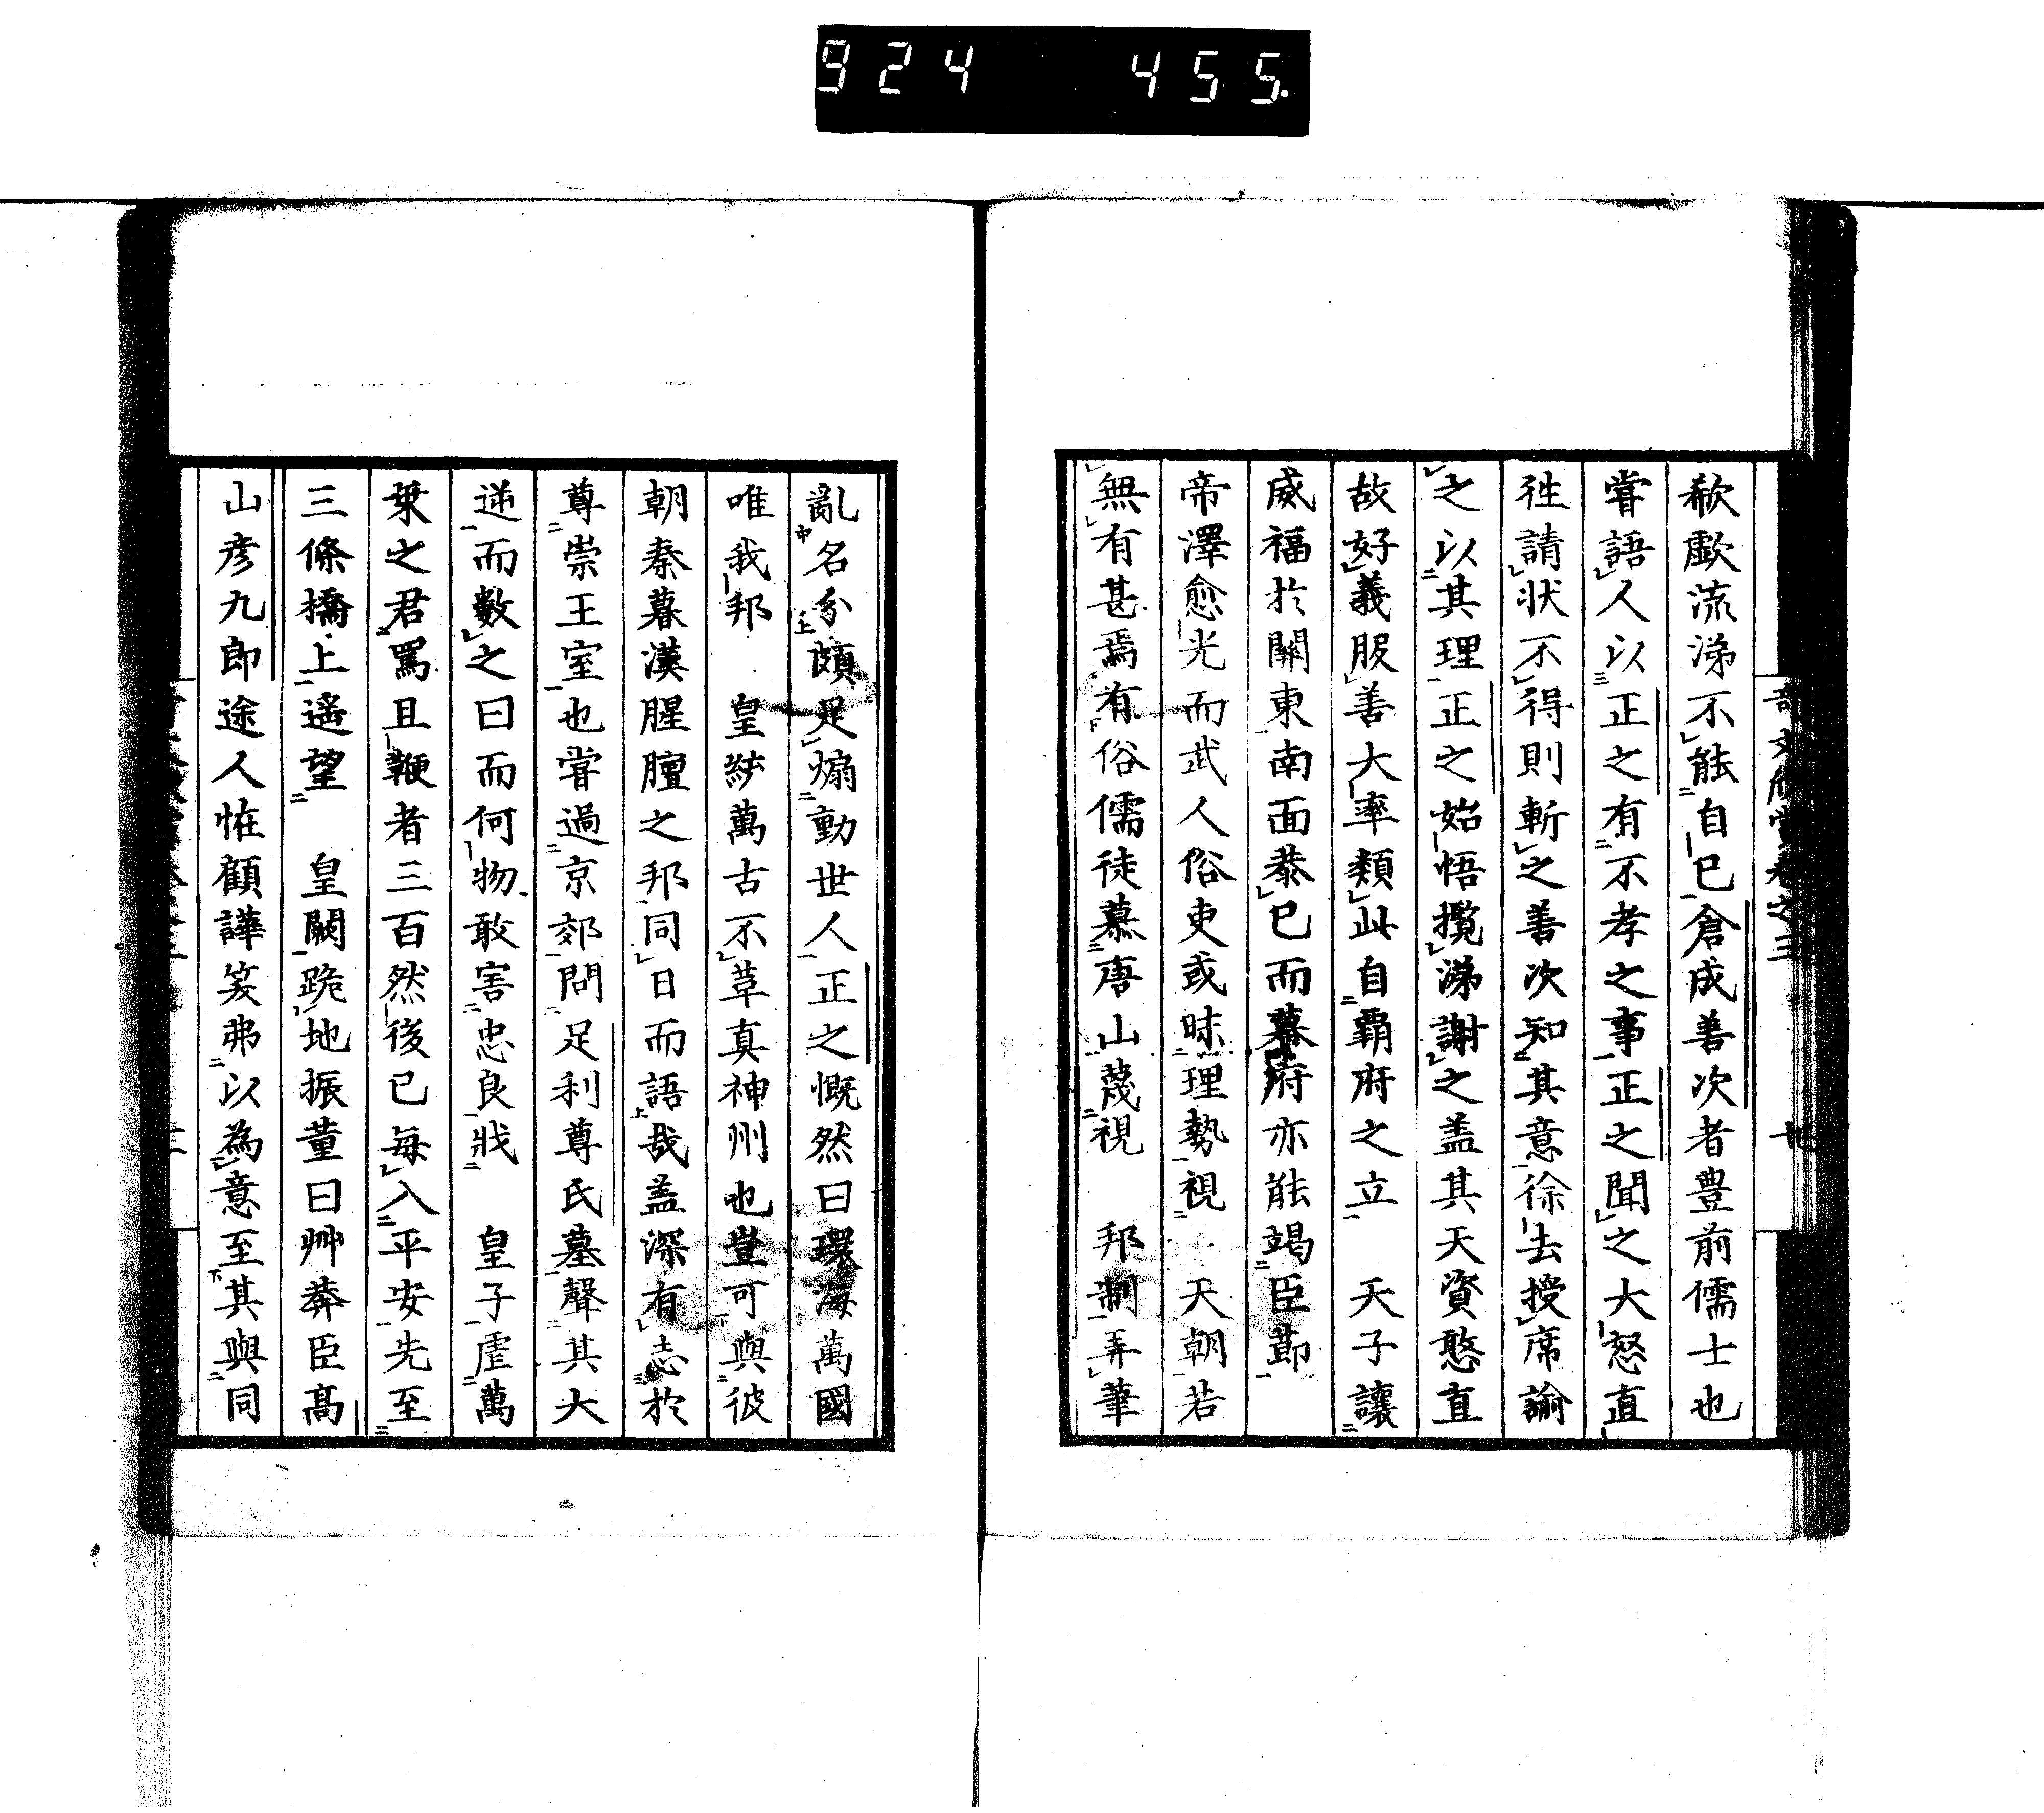 924 455.
欷歔流涕不能自已倉成善次者豊前儒士也
甞語人以正之有不孝之事正之聞之大怒直
徃請状不得則斬之善次知其意徐去授席諭
之以其理正之始悟攬涕謝之盖其天資憨直
故好義服善大率類此自霸府之立　天子讓
威福於關東南面恭已而幕府亦能竭臣節
帝澤愈光而武人俗吏或昧理勢視　天朝若
無有甚焉有俗儒徒慕唐山蔑視　邦制弄筆
亂名分頗足煽動世人正之慨然曰環海萬國
唯我邦　皇統萬古不革真神州也豈可與彼
朝秦暮漢腥膻之邦同日而語哉盖深有志於
尊崇王室也甞過京郊問足利尊氏墓聲其大
逆而數之曰而何物敢害忠良戕　皇子虐萬
乗之君罵且鞭者三百然後已毎入平安先至
三條橋上遥望　皇闕跪地振董曰艸莽臣髙
山彦九郎途人恠顧譁笑弗以為意至其與同